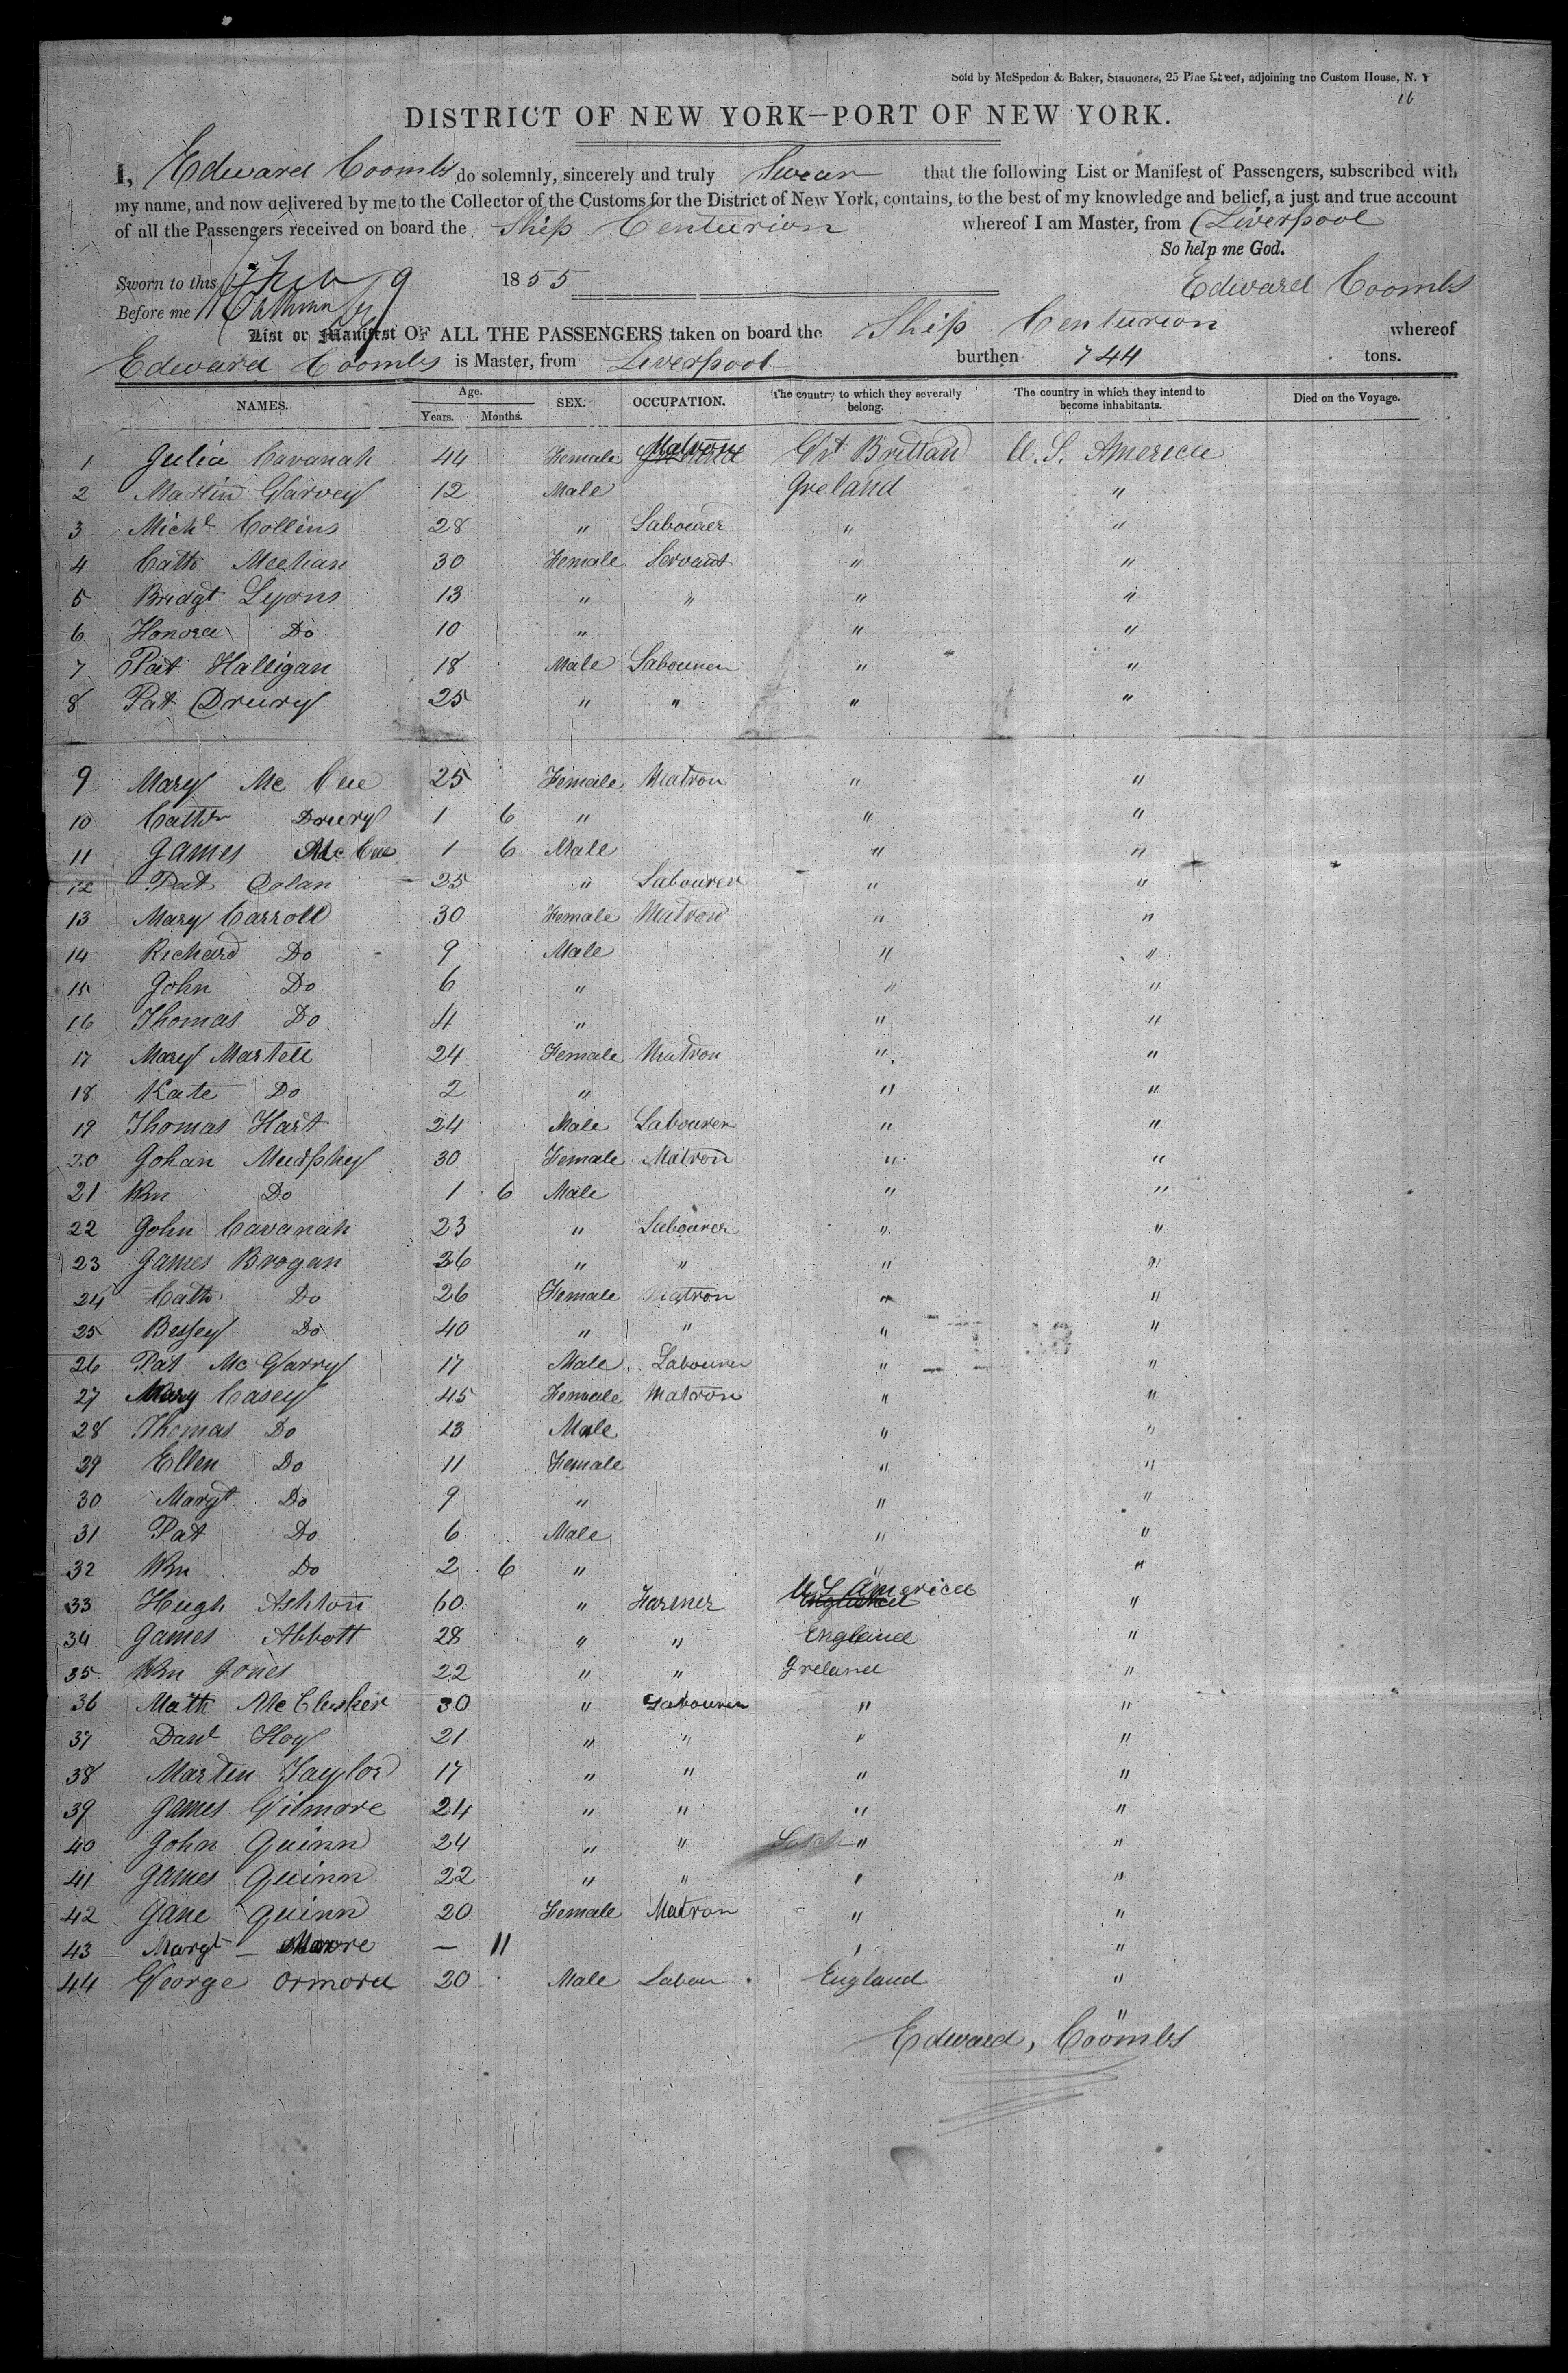 Sold by McSpedon & Baker, Stationers, 25 Pine Street, adjoining the Custom House, N. Y
16
DISTRICT OF NEW YORK—PORT OF NEW YORK.
I, Edward Coombs do solemnly, sincerely and truly Swear that the following List or Manifest of Passengers, subscribed with
my name, and now delivered by me to the Collector of the Customs for the District of New York, contains, to the best of my knowledge and belief, a just and true account
of all the Passengers received on board the Ship Centurion whereof I am Master, from Liverpool
So help me God.
Sworn to this Feb 9 1855 Edward Coombs
Before me
List or Manifest OF ALL THE PASSENGERS taken on board the Ship Centurion whereof
Edward Coombs is Master, from Liverpool burthen 744 tons.
NAMES. Age. Years. Months. SEX. OCCUPATION. The country to which they severally belong. The country in which they intend to become inhabitants. Died on the Voyage.
1 Julia Cavanah 44 Female Matron Grt Brittan U. S. America
2 Martin Garvey 12 Male Ireland "
3 Michl Collins 28 " Labourer " "
4 Cath Meehan 30 Female Servant " "
5 Bridgt Lyons 13 " " " "
6 Honora Do 10 " " "
7 Pat Halligan 18 Male Labourer " "
8 Pat Drury 25 " " " "
9 Mary Mc Cue 25 Female Matron " "
10 Cathn Drury 1 6 " " "
11 James Mc Cue 1 6 Male " "
12 Pat Dolan 25 " Labourer " "
13 Mary Carroll 30 Female Matron " "
14 Richard Do 9 Male " "
15 John Do 6 " " "
16 Thomas Do 4 " " "
17 Mary Martell 24 Female Matron " "
18 Kate Do 2 " " "
19 Thomas Hart 24 Male Labourer " "
20 Johan Murphy 30 Female Matron " "
21 Wm Do 1 6 Male " "
22 John Cavanah 23 " Labourer " "
23 James Brogan 36 " " " "
24 Cath Do 26 Female Matron " "
25 Bessey Do 40 " " " "
26 Pat Mc Garry 17 Male Labourer " "
27 Mary Casey 45 Female Matron " "
28 Thomas Do 13 Male " "
29 Ellen Do 11 Female " "
30 Margt Do 9 " " "
31 Pat Do 6 Male " "
32 Wm Do 2 6 " " "
33 Hugh Ashton 60 " Farmer U S America "
34 James Abbott 28 " " England "
35 Wm Jones 22 " " Ireland "
36 Math McClusker 30 " Labourer " "
37 Danl Hoy 21 " " " "
38 Marten Taylor 17 " " " "
39 James Gilmore 24 " " " "
40 John Quinn 24 " " " "
41 James Quinn 22 " " " "
42 Jane Quinn 20 Female Matron " "
43 Margt — Moore — 11 " "
44 George Ormord 20 Male Labou England "
"
Edward, Coombs